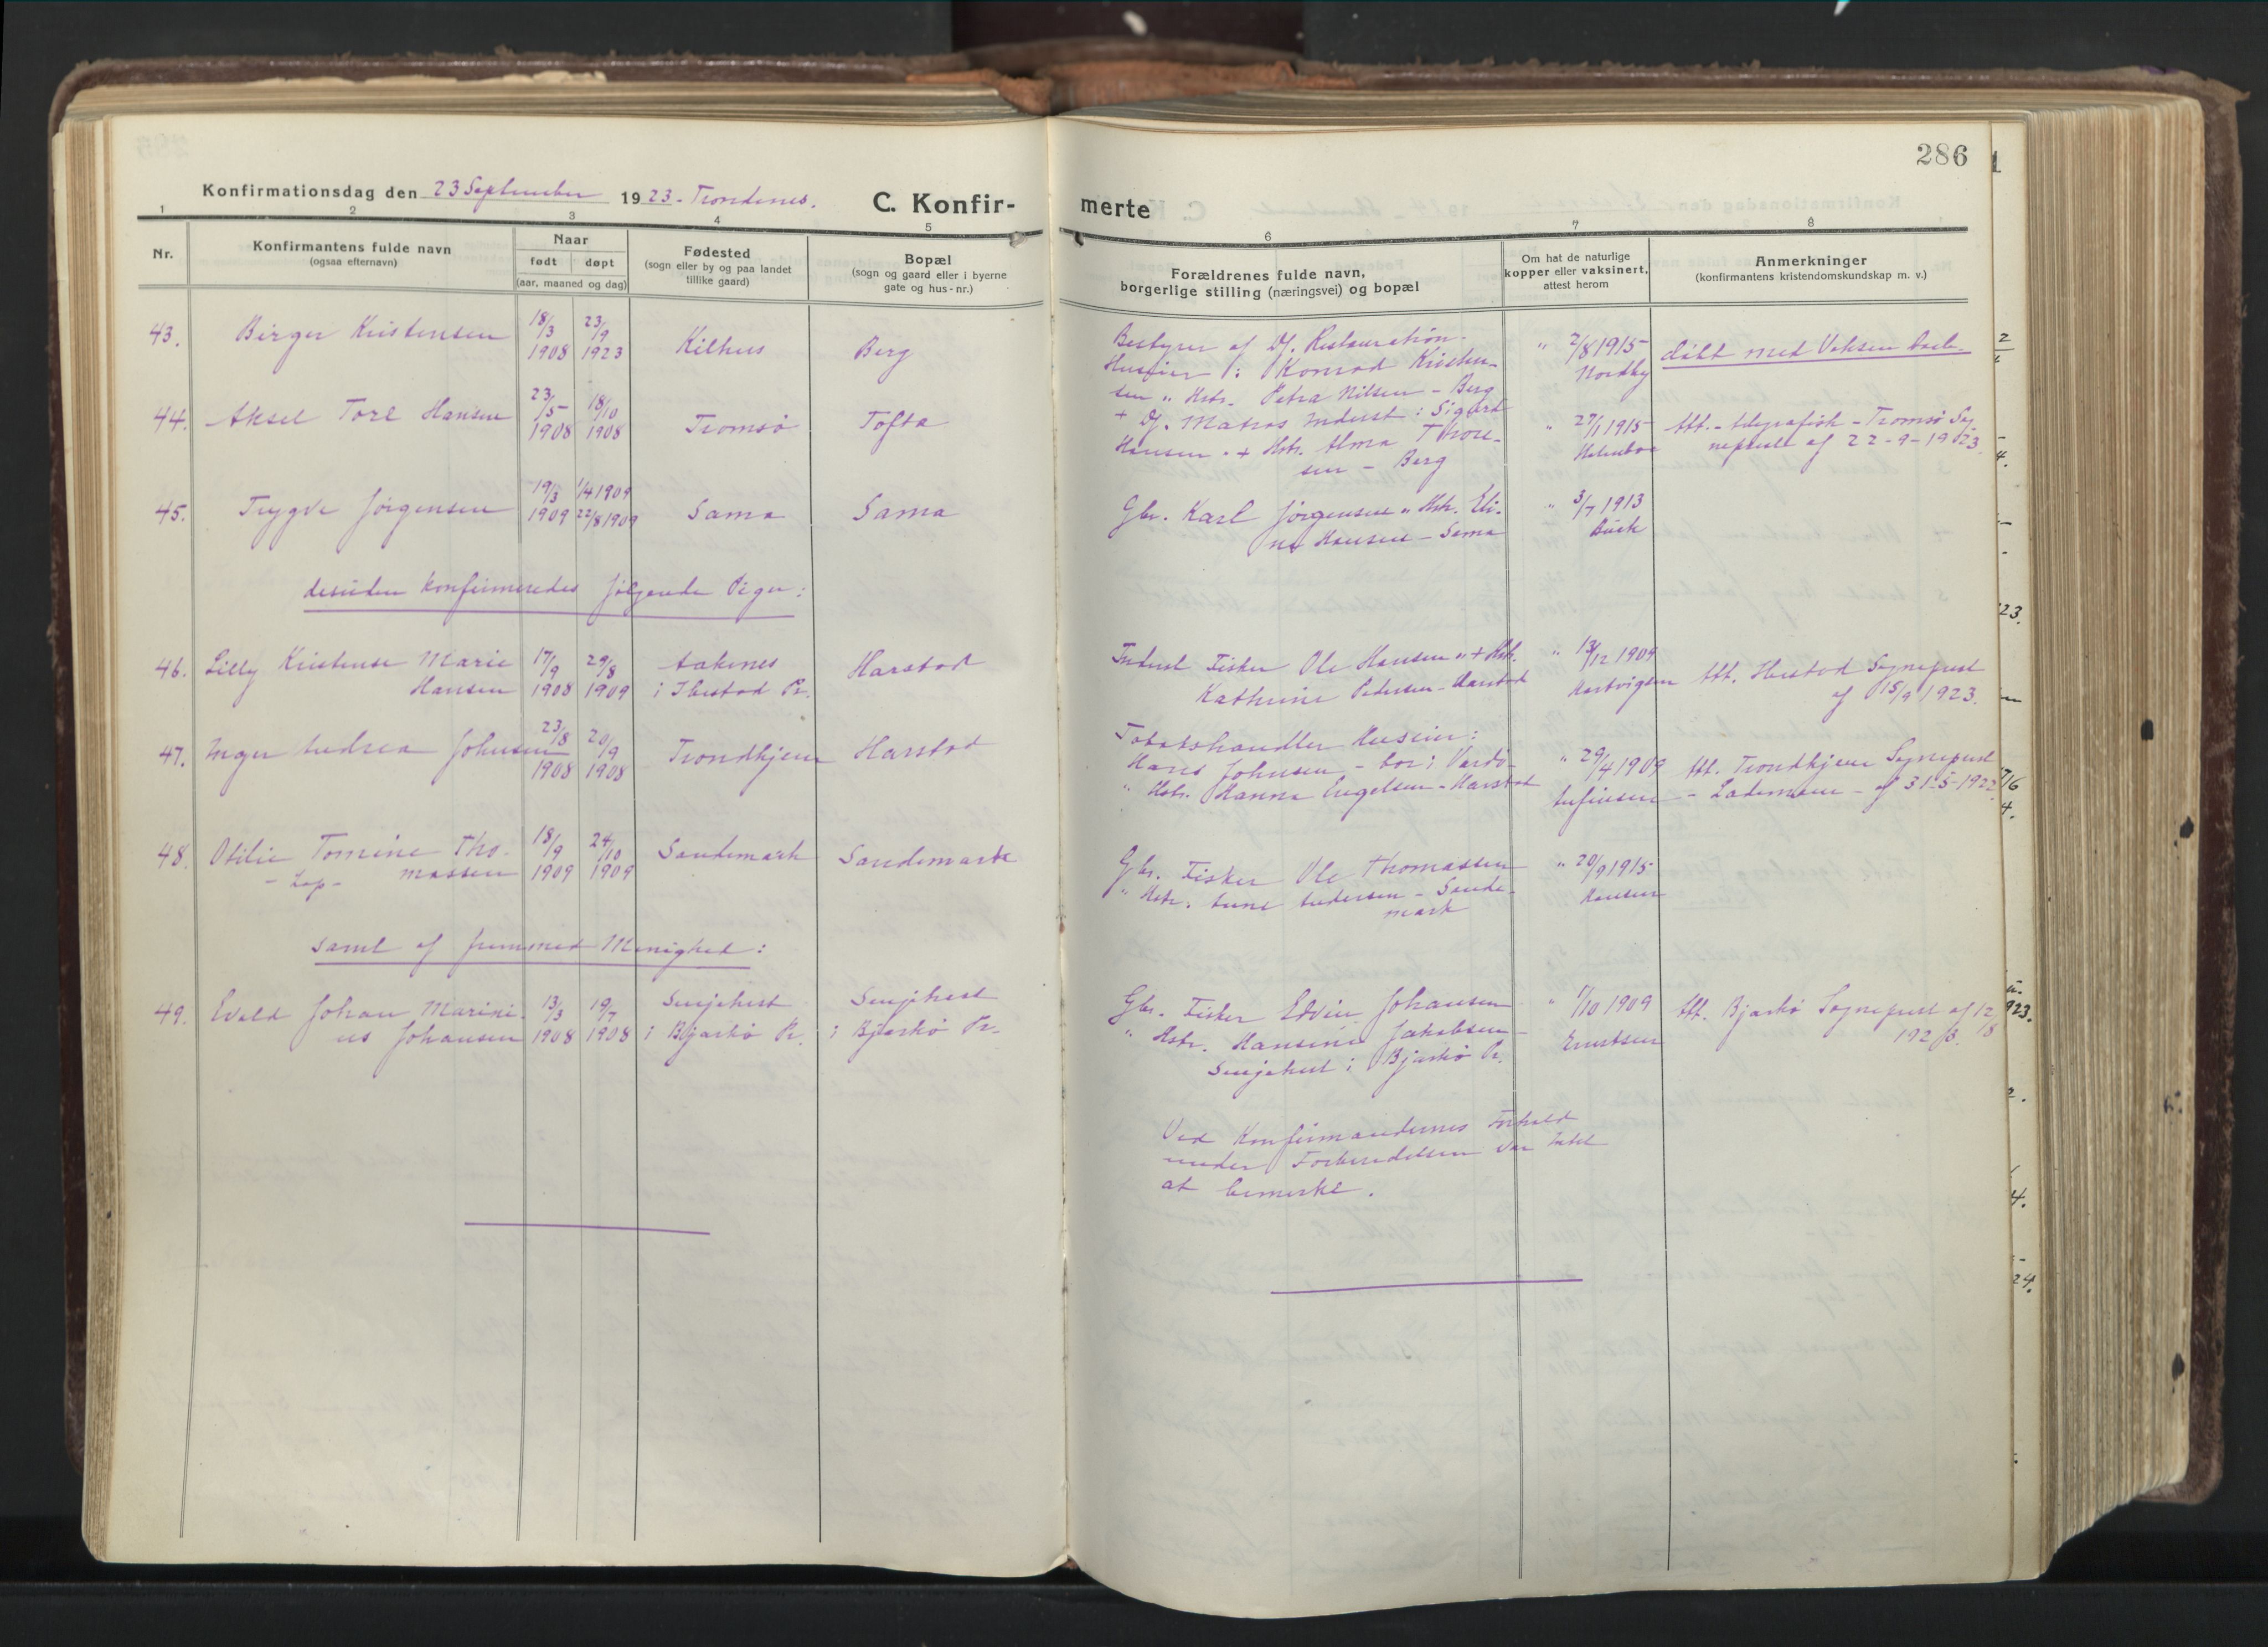 286
Konfirmationsdag den 23 September 1923 - Trondenes.
C. Konfir-
merte
1 2 3 4 5 6 7 8
Nr.
Konfirmantens fulde navn
(ogsaa efternavn)
Naar
født døpt
(aar, maaned og dag)
Fødested
(sogn eller by og paa landet
tillike gaard)
Bopæl
(sogn og gaard eller i byerne
gate og hus-nr.)
Forældrenes fulde navn,
borgerlige stilling (næringsvei) og bopæl
Om hat de naturlige
kopper eller vaksinert,
attest herom
Anmerkninger
(konfirmantens kristendomskundskap m. v.)
43. Birger Kristensen 18/3 1908 23/9 1923 Kilhus Berg
Bestyrer af Df. Restauration
Husfier: Konrad Kristen-
sen " Hstr. Petra Nilsen - Berg
" 2/8 1915
Nordby
døbt med Voksen daab
44. Aksel Tore Hansen 23/5 1908 18/10 1908 Tromsø Tofta
+ Df. Matros Inderst: Sigurd
Hansen + Hstr. Alma Thore-
sen - Berg
" 27/1 1915
Att. telegrafisk - Tromsø Sog-
neprest af 22-9-1923
45. Trygve Jørgensen 19/3 1909 1/4 1909 22/8 1909 Sama Sama
Gbr. Karl Jørgensen " Hstr. Eli-
ne Hansen - Sama
" 3/7 1913
Buck
desuden konfirmeredes følgende Piger:
46. Lilly Kristense Marie
Hansen 17/9 1908 29/8 1909
Aakenes
i Ibestad Pr.
Harstad
Inderst Fisker Ole Hansen " + Hstr.
Kathrine Pedersen - Harstad
" 13/12 1909
Hartvigsen
Att. Ibestad Sogneprest
af 15/9 1923.
47. Inger Andrea Johnsen 23/8 1908 20/9 1908 Trondhjem Harstad
Tobakshandler Husfier:
Hans Johnsen - bor i Vardø
" Hstr. Hanna Engelsen - Harstad
" 29/4 1909
Att. Trondhjem Sogneprest
- Lademoen - af 31-5-1922
48. Otilie Tomine Tho-
- Lap - massen 18/9 1909 24/10 1909 Sandemark Sandemark
Gbr. Fisker Ole Thomassen
" Hstr. Anne Andersen - Sande-
mark
" 20/9 1915
Hansen
samt af fremmed Menighed:
49. Evald Johan Marini-
us Johansen 13/3 1908 19/7 1908
Senjehest
i Bjarkø Pr.
Senjehest
i Bjarkø Pr.
Gbr. Fisker Edvin Johansen
" Hstr. Hansine Jakobsen
Senjehest i Bjarkø Pr.
" 1/10 1909
Erntsen
Att. Bjarkø Sogneprest af 12/8
1923.
Ved Konfirmandernes Forhold
under Forberedelsen var intet
at bemerke.